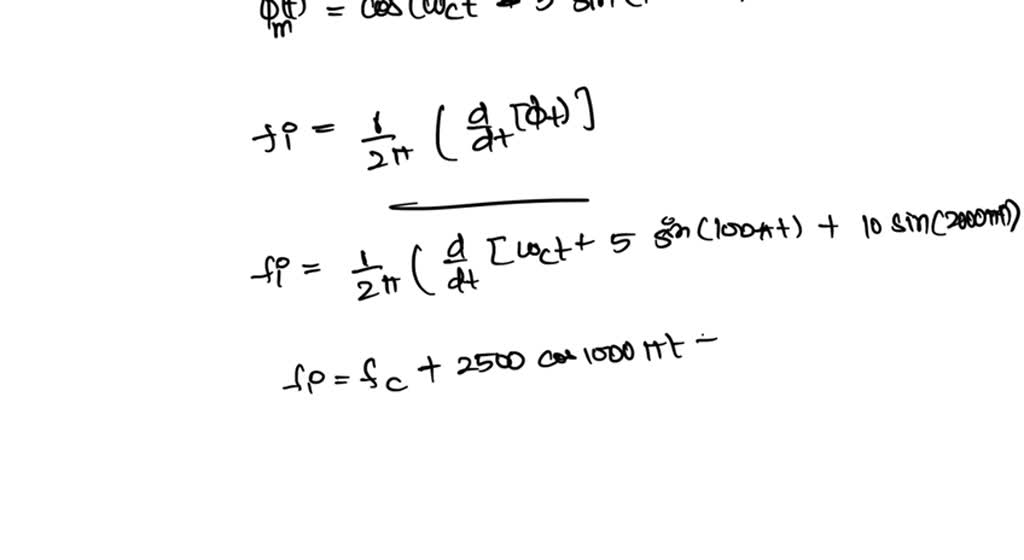 φ(t) = cos(ωct + 5 sin(
m
fi = 1/2π ( d/dt [φt) ]
fi = 1/2π ( d/dt [ωct + 5 sin(100πt) + 10 sin(2000πt)
fi = fc + 2500 cos 1000 πt -